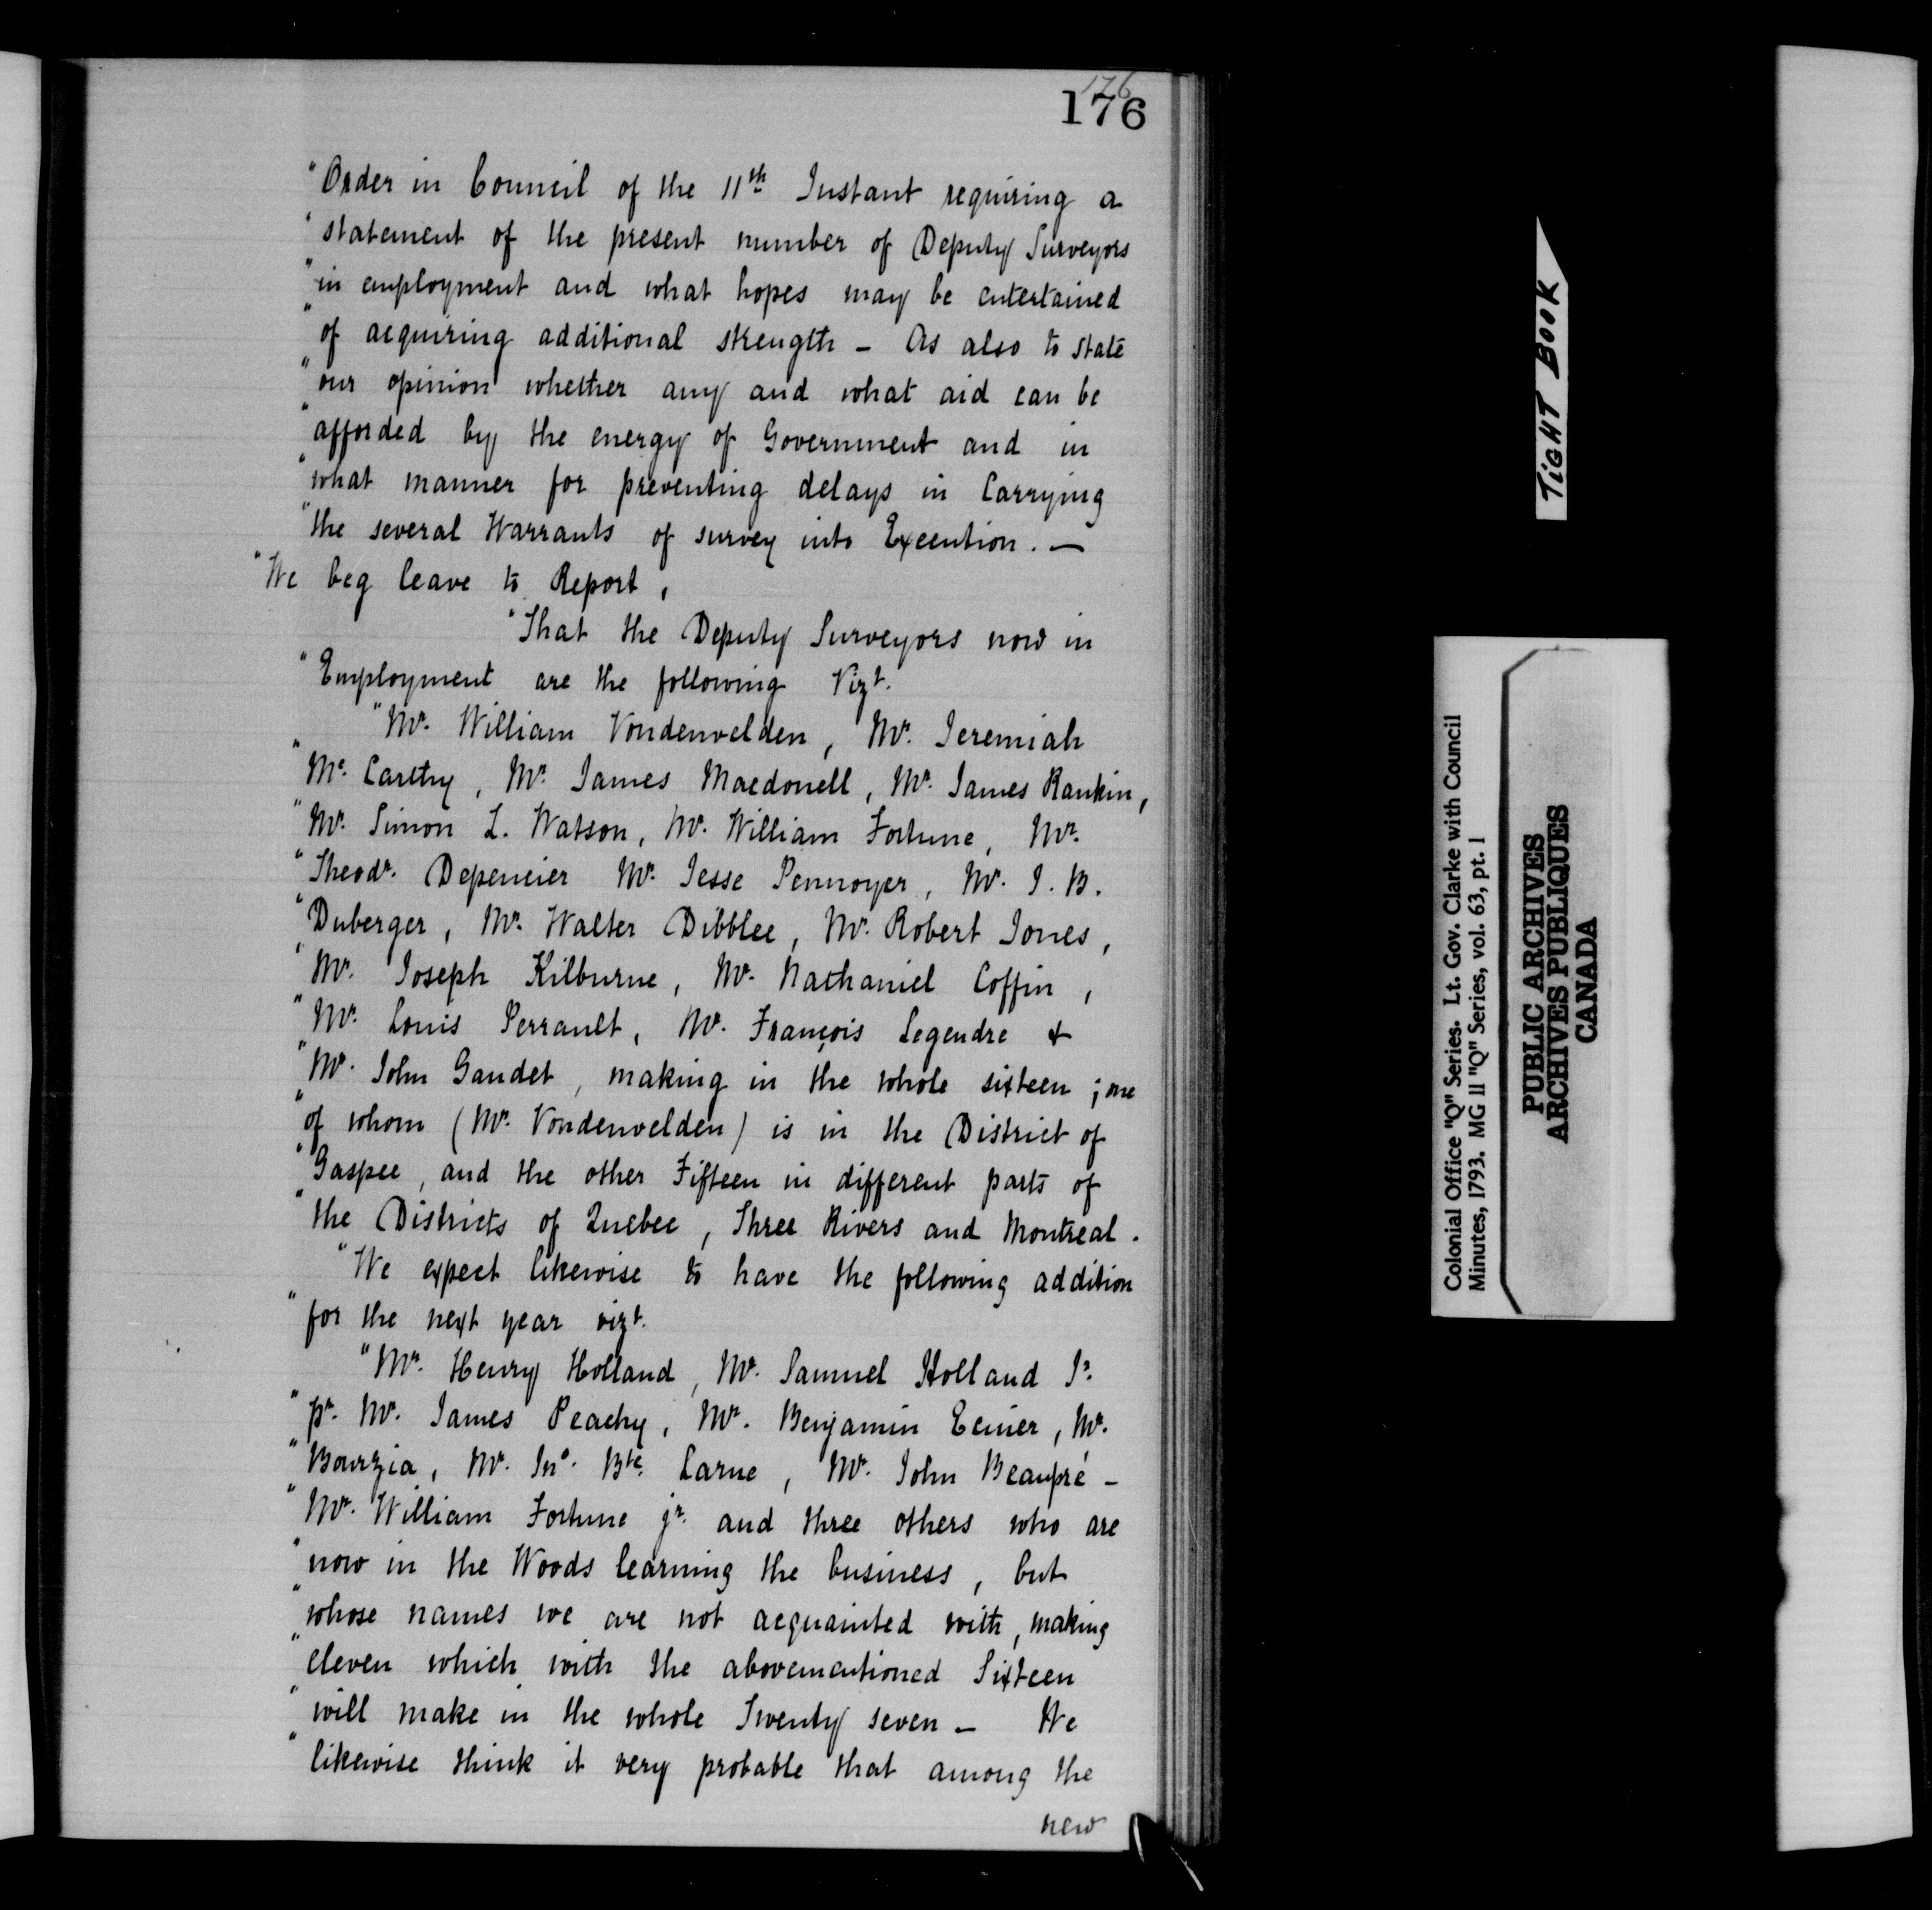 176
176
"Order in Council of the 11th Instant requiring a
"statement of the present number of Deputy Surveyors
"in employment and what hopes may be entertained
"of acquiring additional strength - As also to state
"our opinion whether any and what aid can be
"afforded by the energy of Government and in
"what manner for preventing delays in Carrying
"the several Warrants of survey into Execution. —
"We beg leave to Report,
"That the Deputy Surveyors now in
"Employment are the following Vizt.
"Mr. William Vondenvelden, Mr. Jeremiah
"Mc. Carthy, Mr. James Macdonell, Mr. James Rankin,
"Mr. Simon Z. Watson, Mr. William Fortune, Mr.
"Theodr. Depencier Mr. Jesse Pennoyer, Mr. J. B.
"Duberger, Mr. Walter Dibblee, Mr. Robert Jones,
"Mr. Joseph Kilburne, Mr. Nathaniel Coffin,
"Mr. Louis Perrault, Mr. François Legendre &
"Mr. John Gaudet, making in the whole sixteen; one
"of whom (Mr. Vondenvelden) is in the District of
"Gaspee, and the other Fifteen in different parts of
"the Districts of Quebec, Three Rivers and Montreal.
"We expect likewise to have the following addition
"for the next year vizt.
"Mr. Henry Holland, Mr. Samuel Holland Jr.
"pr. Mr. James Peachy, Mr. Benjamin Ecuier, Mr.
"Bourgia, Mr. Jno. Bte. Larue, Mr. John Beaupré -
"Mr. William Fortune jr. and three others who are
"now in the Woods learning the business, but
"whose names we are not acquainted with, making
"eleven which with the abovementioned Sixteen
"will make in the whole Twenty seven - We
"likewise think it very probable that among the
new
TIGHT BOOK
Colonial Office "Q" Series. Lt. Gov. Clarke with Council
Minutes, 1793. MG 11 "Q" Series, vol. 63, pt. 1
PUBLIC ARCHIVES
ARCHIVES PUBLIQUES
CANADA